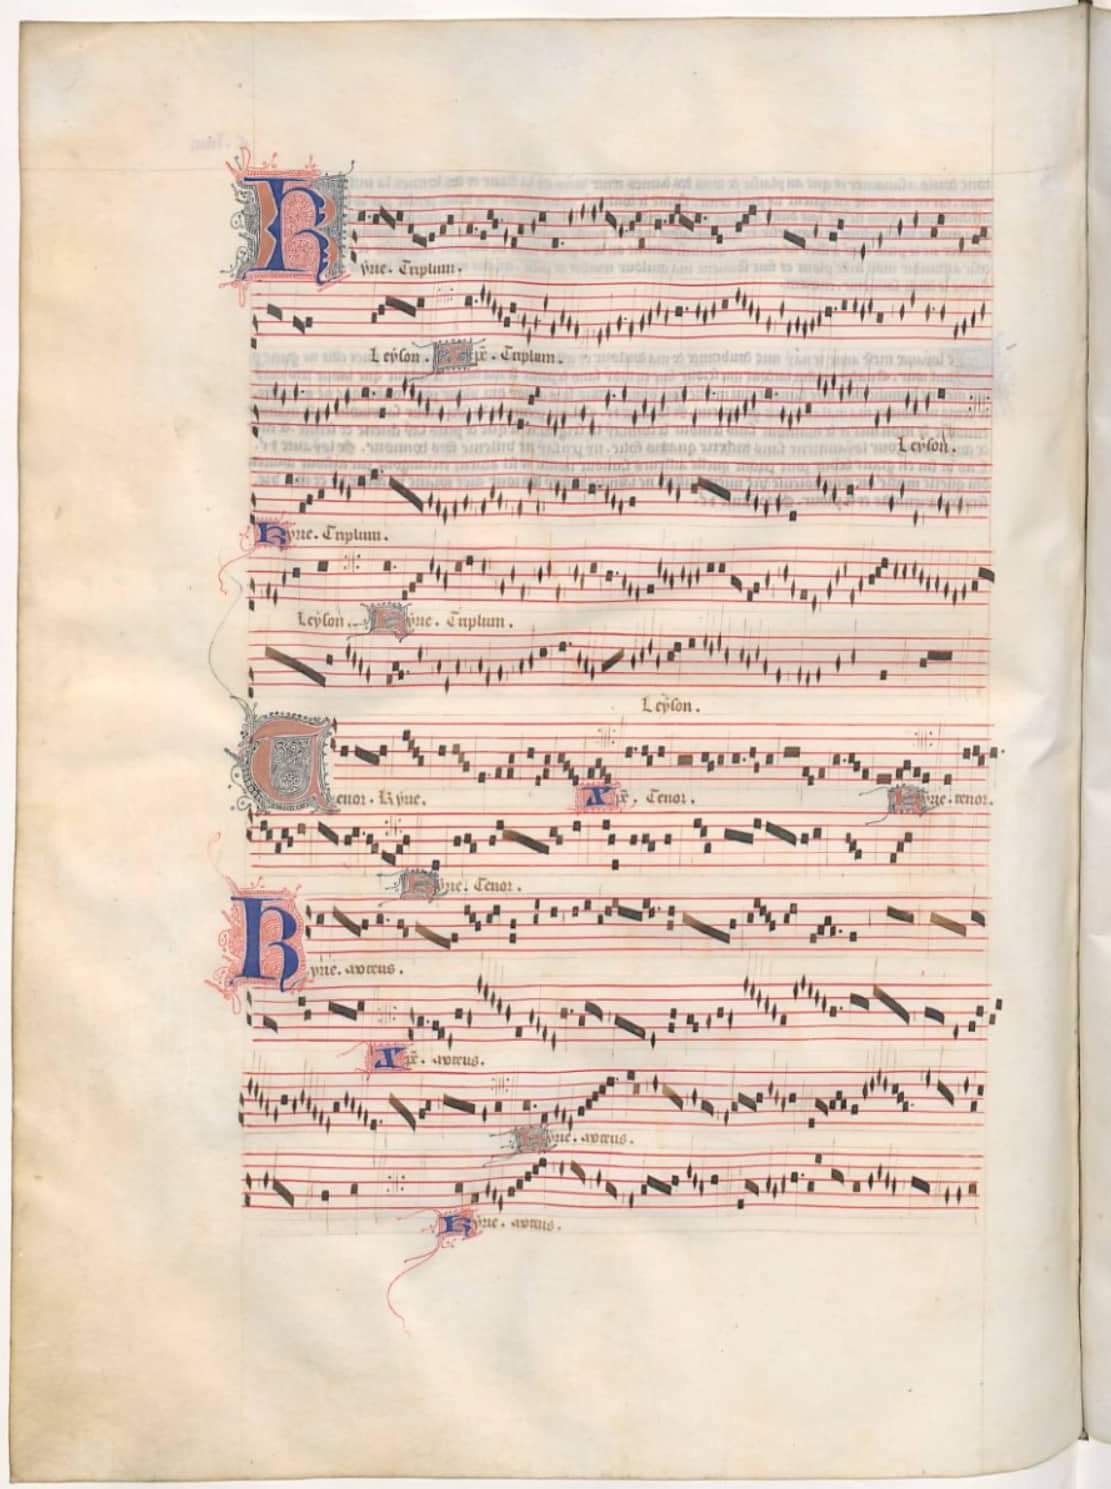 Kyrie. Triplum.
Leyson. Xpe. Triplum.
Leyson.
Kyrie. Triplum.
Leyson. Kyrie. Triplum.
Leyson.
Tenor. Kyrie. Xpe. Tenor. Kyrie. tenor.
Kyrie. Tenor.
Kyrie. motetus.
Xpe. motetus.
Kyrie. motetus.
Kyrie. motetus.